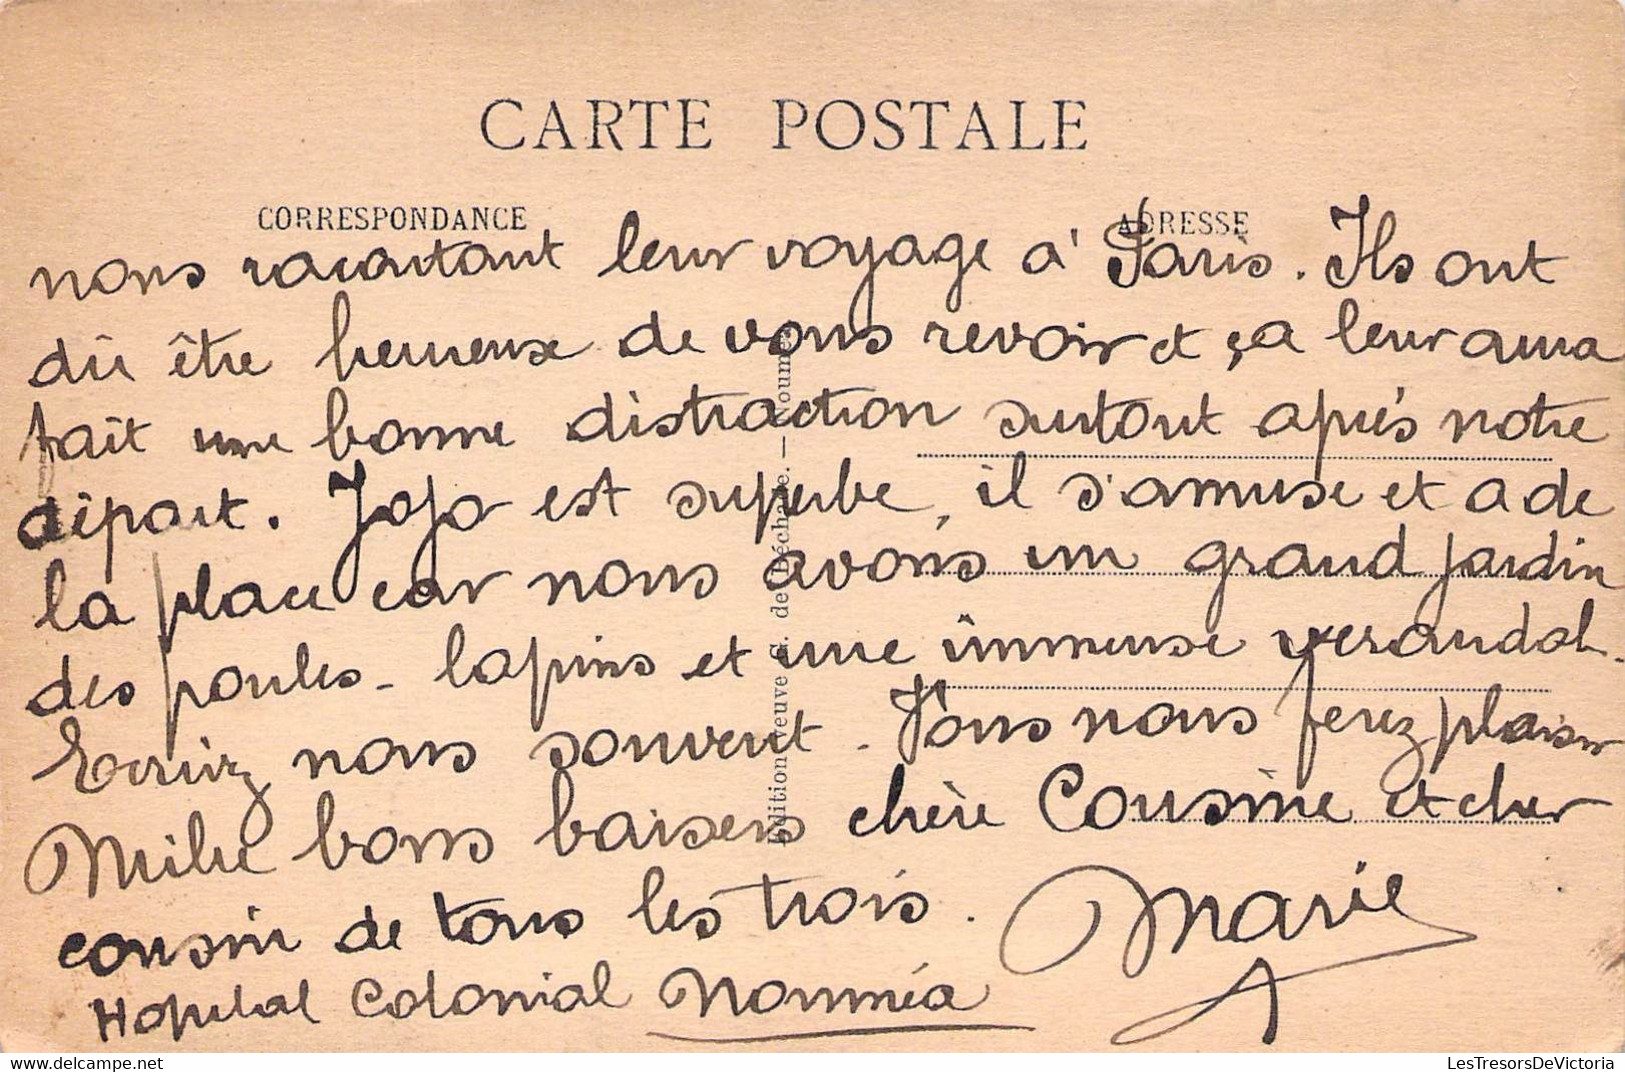 CARTE POSTALE
CORRESPONDANCE
ADRESSE
nous racontant leur voyage à Paris. Ils ont
dû être heureux de vous revoir et ça leur aura
fait une bonne distraction surtout après notre
départ. Jojo est superbe, il s'amuse et a de
la place car nous avons un grand jardin
des poules - lapins et une immense verandah.
Ecrivez nous souvent. Vous nous ferez plaisir
Mille bons baisers chère Cousine et cher
cousin de tous les trois. Marie
Hopital Colonial Nouméa
Edition veuve de Béchade. — Nouméa
LesTresorsDeVictoria